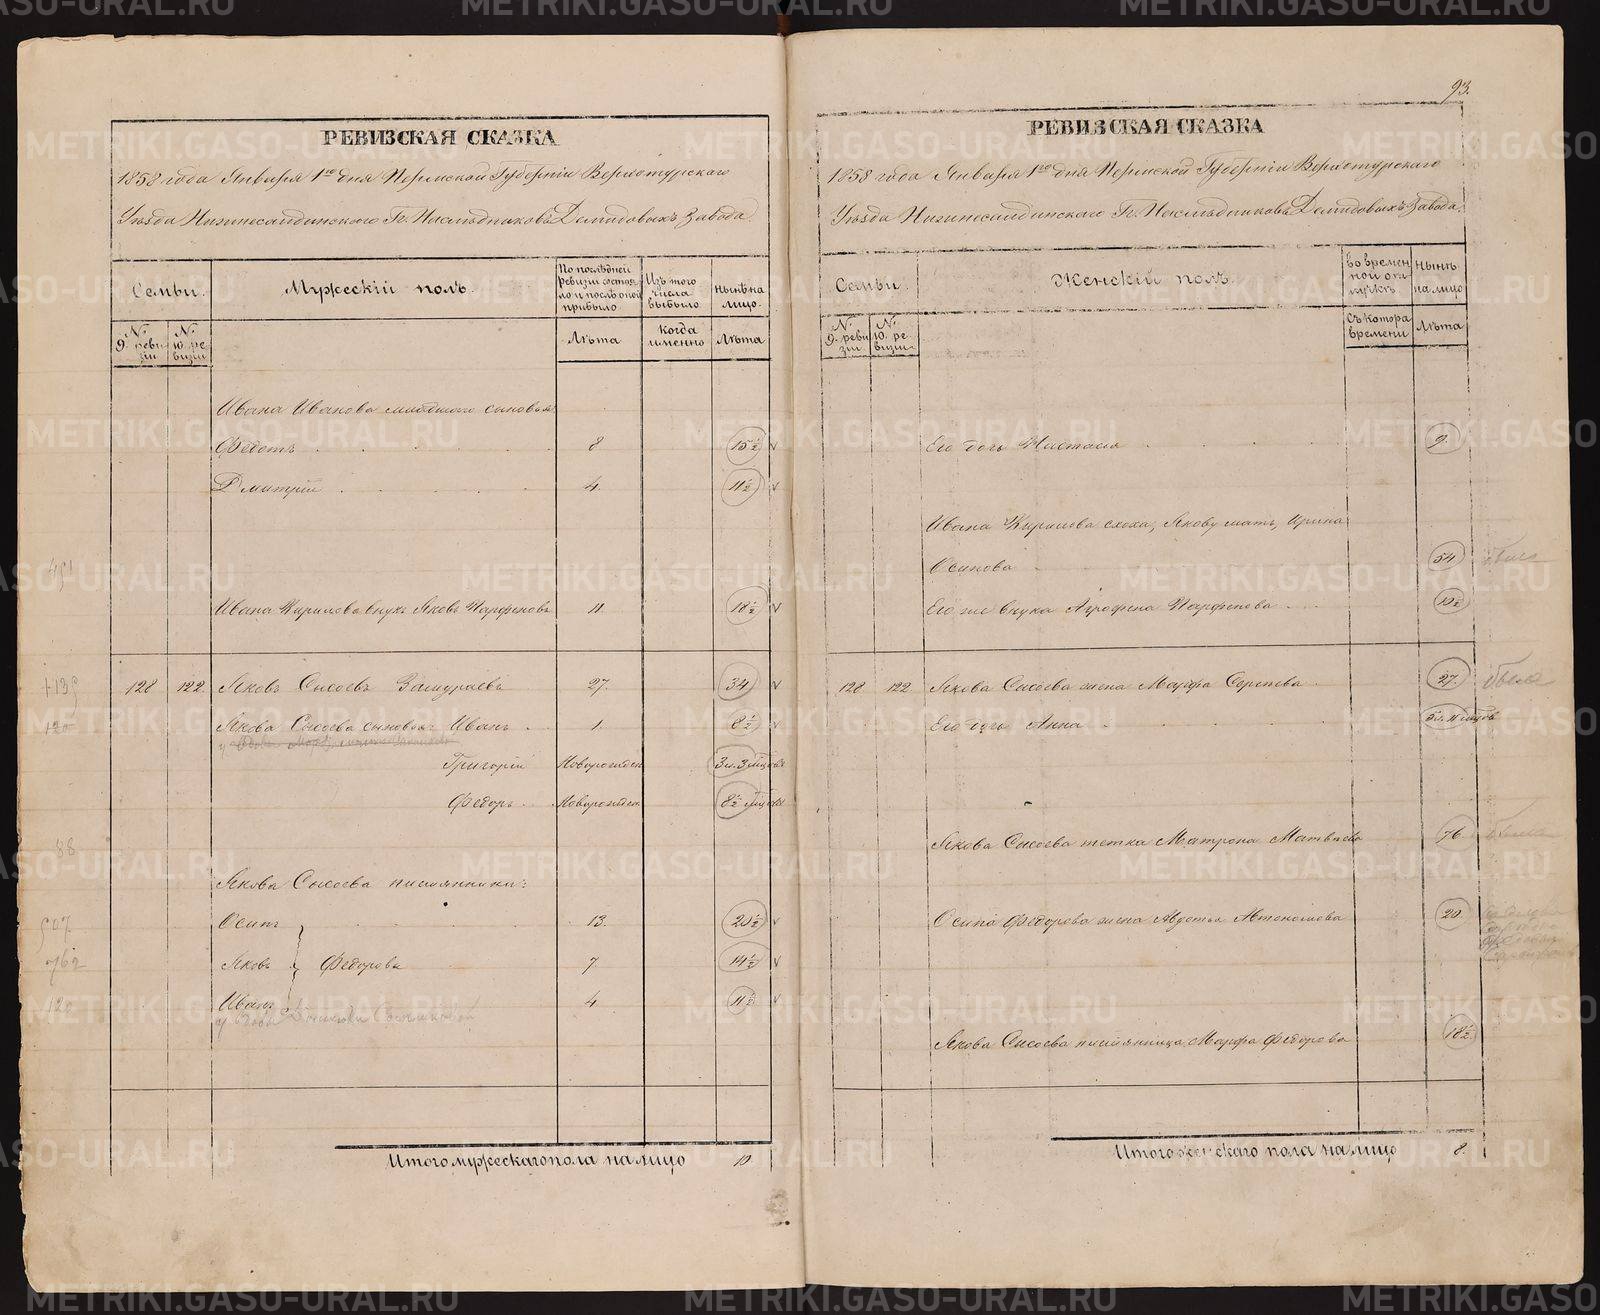 РЕВИЗСКАЯ СКАЗКА
1858 года Января 1го дня Пермской Губерніи Верхотурскаго
Уѣзда Нижнесалдинскаго Гг. Наслѣдниковъ Демидовыхъ Завода.
Семьи.
Мужескій полъ.
По послѣдней ревизіи состояло и послѣ оной прибыло
Изъ того числа выбыло
Нынѣ на лицо.
№ 9. ревизіи
№ 10. ревизіи
Лѣта
когда именно
Лѣта
Ивана Иванова младшаго сыновья
Федотъ 8 15½
Дмитрій 4. 11½
Ивана Кирилова внукъ Яковъ Парфеновъ 11 18½
128 122 Яковъ Сысоевъ Замураевъ 27. 34
Якова Сысоева сыновья Иванъ 1. 8½
Григорій Новорожден 3 и 3 мѣцовъ
Федоръ Новорожден 8½ мѣцовъ
Якова Сысоева племянники:
Осипъ 13. 20½
Яковъ Федоровы 7. 14½
Иванъ 4 11½
Итого мужескаго пола на лицо 10.
93.
РЕВИЗСКАЯ СКАЗКА
1858 года Января 1го дня Пермской Губерніи Верхотурскаго
Уѣзда Нижнесалдинскаго Гг. Наслѣдниковъ Демидовыхъ Завода.
Семьи.
Женскій полъ.
Во временной отлучкѣ.
Нынѣ на лицо
№ 9. ревизіи
№ 10. ревизіи
Съ котора времени
Лѣта
Его дочь Настасья 9.
Ивана Кирилова сноха, Якову мать, Ирина
Осипова 54
Его же внука Агрофена Парфенова
128 122 Якова Сысоева жена Марфа Сергеева 27.
Его дочь Анна
Якова Сысоева тетка Матрона Матвѣева 76.
Осипа Федорова жена Авдотья Автономова 20.
Якова Сысоева племянница Марфа Федорова 18½
Итого женскаго пола на лицо 8.
METRIKI.GASO-URAL.RU